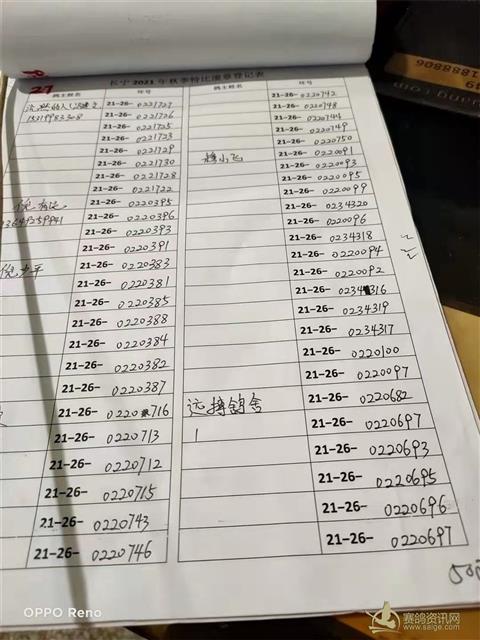 27
长宁2021年秋季特比潼章登记表
鸽主姓名 环号 鸽主姓名 环号
21-26-0221727
15219983308 21-26-0221726
21-26-0221725
21-26-0221723
21-26-0221729
21-26-0221730
21-26-0221728
21-26-0221722
21-26-0220395
13649259941 21-26-0220396
21-26-0220393
21-26-0220391
21-26-0220383
21-26-0220381
21-26-0220385
21-26-0220388
21-26-0220384
21-26-0220382
21-26-0220387
21-26-0220716
21-26-0220713
21-26-0220712
21-26-0220715
21-26-0220743
21-26-0220746
21-26-0220742
21-26-0220748
21-26-0220744
21-26-0220749
21-26-0220750
穆小飞 21-26-0220091
21-26-0220093
21-26-0220095
21-26-0220099
21-26-0234320
21-26-0220096
21-26-0234318
21-26-0220094
21-26-0220092
21-26-0234316
21-26-0234319
21-26-0234317
21-26-0220100
21-26-0220097
远搏鸽舍 21-26-0220682
21-26-0220697
21-26-0220693
21-26-0220695
21-26-0220696
21-26-0220697
OPPO Reno
赛鸽资讯网
www.saige.com